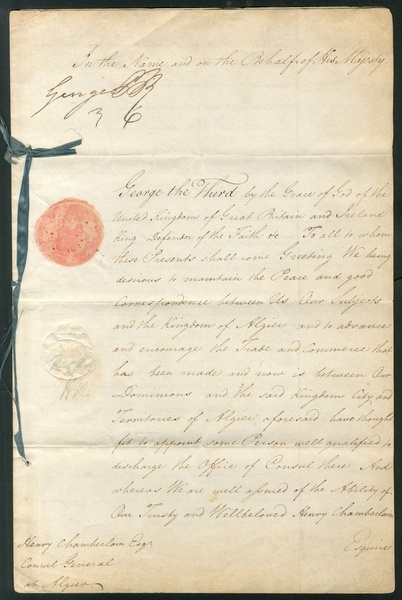 In the Name and on the Behalf of His Majesty
George P R
George the Third by the Grace of God of the
United Kingdom of Great Britain and Ireland
King Defender of the Faith &c To all to whom
these Presents shall come Greeting We being
desirous to maintain the Peace and good
Correspondence between Us Our Subjects
and the Kingdom of Algier and to advance
and encourage the Trade and Commerce that
has been made and now is between Our
Dominions and the said Kingdom City and
Territories of Algier aforesaid have thought
fit to appoint some Person well qualified to
discharge the Office of Consul there And
whereas We are well assured of the Ability of
Our Trusty and Wellbeloved Henry Chamberlain
Esquire
Henry Chamberlain Esqr
Consul General
at Algier